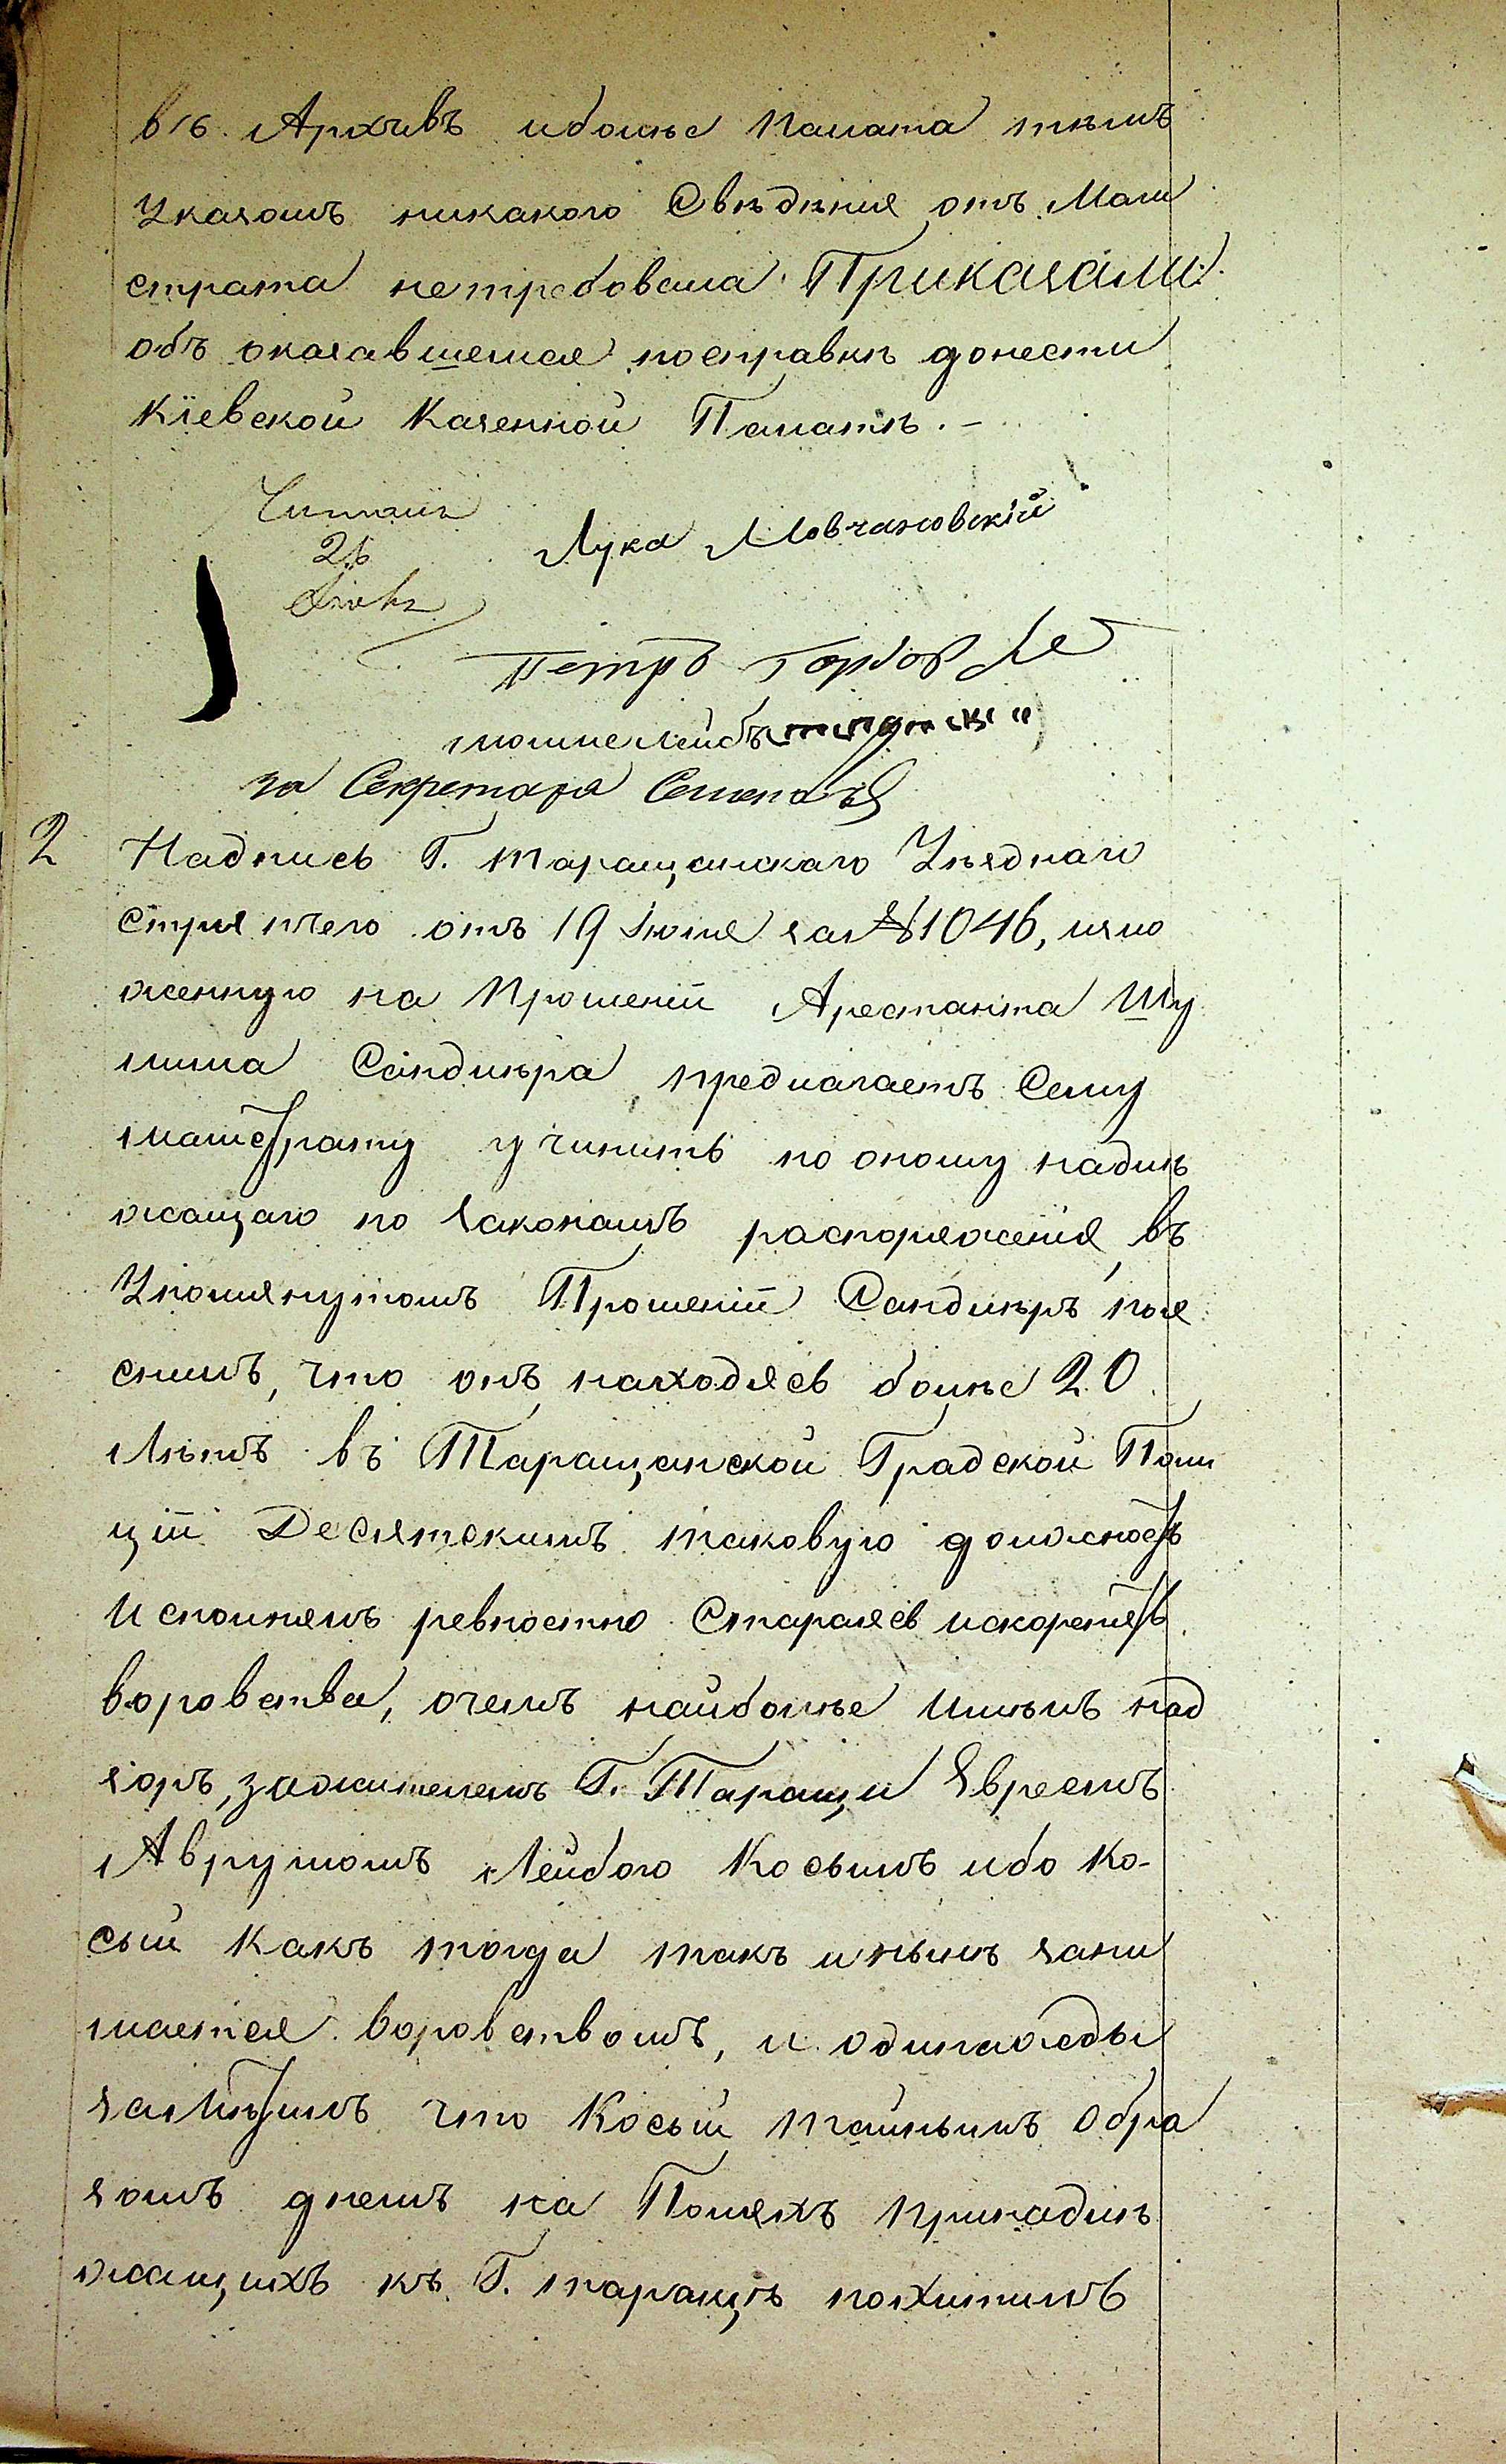 въ Архивъ иболѣе Палата тѣмъ
Указомъ никакого Свѣдѣнія отъ Маги
страта нетребовала Приказали:
объ оказавшемся посправкѣ донести
Кіевской Казенной Палатѣ. –
Лука Мовчановскій
Петръ Горбов
мошко лейбъ
за Секретаря
2 Надпись Г. таращанскаго Уѣзднаго
Стряпчего отъ 19 Іюля за № 1046, изло
женную на Прошеніи Арестанта Шу
лима Сандлѣра предлагаетъ Сему
магистрату учинить по оному надлѣ
жащаго по Законамъ распоряженія, въ
Упомянутомъ Прошеніи Сандлѣръ поя
снилъ, что онъ находясь болѣе 20
Лѣтъ въ Таращанской Градской Поли
ціи Десятскимъ таковую должность
Исполнялъ ревностно Стараясь искоренять
воровства, очемъ наиболѣе Имѣлъ над
зоръ, зажителемъ Г. Таращи Евреемъ
Аврумомъ Лейбою Косымъ ибо Ко-
сый Какъ тогда такъ инынѣ зани
мается воровствомъ, и одинажды
замѣтилъ что Косый тайнымъ Обра
зомъ днемъ на Поляхъ принадлѣ
жащихъ къ Г. таращѣ похитилъ